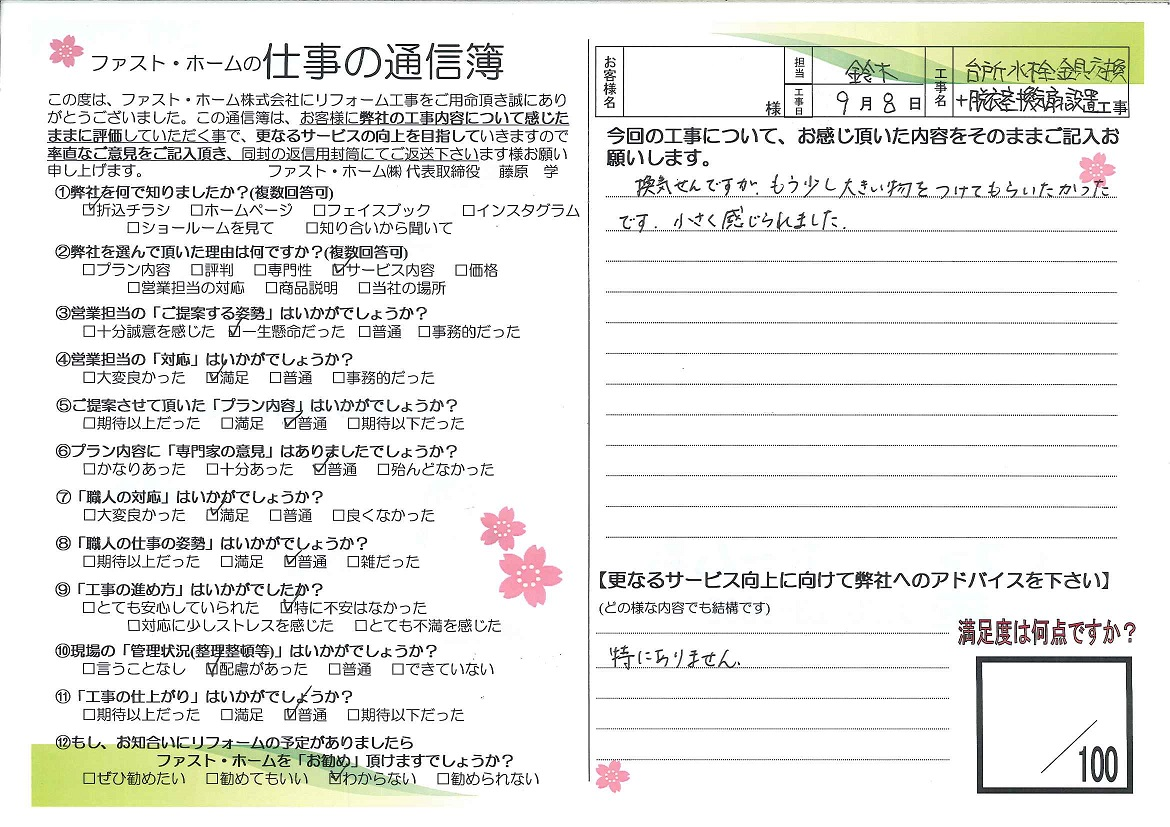 ファスト・ホームの仕事の通信簿
この度は、ファスト・ホーム株式会社にリフォーム工事をご用命頂き誠にあり
がとうございました。この通信簿は、お客様に弊社の工事内容について感じた
ままに評価していただく事で、更なるサービスの向上を目指していきますので
率直なご意見をご記入頂き、同封の返信用封筒にてご返送下さいます様お願い
申し上げます。 ファスト・ホーム㈱ 代表取締役 藤原 学
①弊社を何で知りましたか?(複数回答可)
☑折込チラシ □ホームページ □フェイスブック □インスタグラム
□ショールームを見て □知り合いから聞いて
②弊社を選んで頂いた理由は何ですか?(複数回答可)
□プラン内容 □評判 □専門性 ☑サービス内容 □価格
□営業担当の対応 □商品説明 □当社の場所
③営業担当の「ご提案する姿勢」はいかがでしょうか?
□十分誠意を感じた ☑一生懸命だった □普通 □事務的だった
④営業担当の「対応」はいかがでしょうか?
□大変良かった ☑満足 □普通 □事務的だった
⑤ご提案させて頂いた「プラン内容」はいかがでしょうか?
□期待以上だった □満足 ☑普通 □期待以下だった
⑥プラン内容に「専門家の意見」はありましたでしょうか?
□かなりあった □十分あった ☑普通 □殆んどなかった
⑦「職人の対応」はいかがでしょうか?
□大変良かった ☑満足 □普通 □良くなかった
⑧「職人の仕事の姿勢」はいかがでしょうか?
□期待以上だった □満足 ☑普通 □雑だった
⑨「工事の進め方」はいかがでしたか?
□とても安心していられた ☑特に不安はなかった
□対応に少しストレスを感じた □とても不満を感じた
⑩現場の「管理状況(整理整頓等)」はいかがでしょうか?
□言うことなし ☑配慮があった □普通 □できていない
⑪「工事の仕上がり」はいかがでしょうか?
□期待以上だった □満足 ☑普通 □期待以下だった
⑫もし、お知合いにリフォームの予定がありましたら
ファスト・ホームを「お勧め」頂けますでしょうか?
□ぜひ勧めたい □勧めてもいい ☑わからない □勧められない
お客様名 様 担当 鈴木 工事名 台所水栓金具交換
工事日 9月8日 +脱衣室換気扇設置工事
今回の工事について、お感じ頂いた内容をそのままご記入お
願いします。
換気せんですが、もう少し大きい物をつけてもらいたかった
です。小さく感じられました。
【更なるサービス向上に向けて弊社へのアドバイスを下さい】
(どの様な内容でも結構です)
特にありません。
満足度は何点ですか?
/100